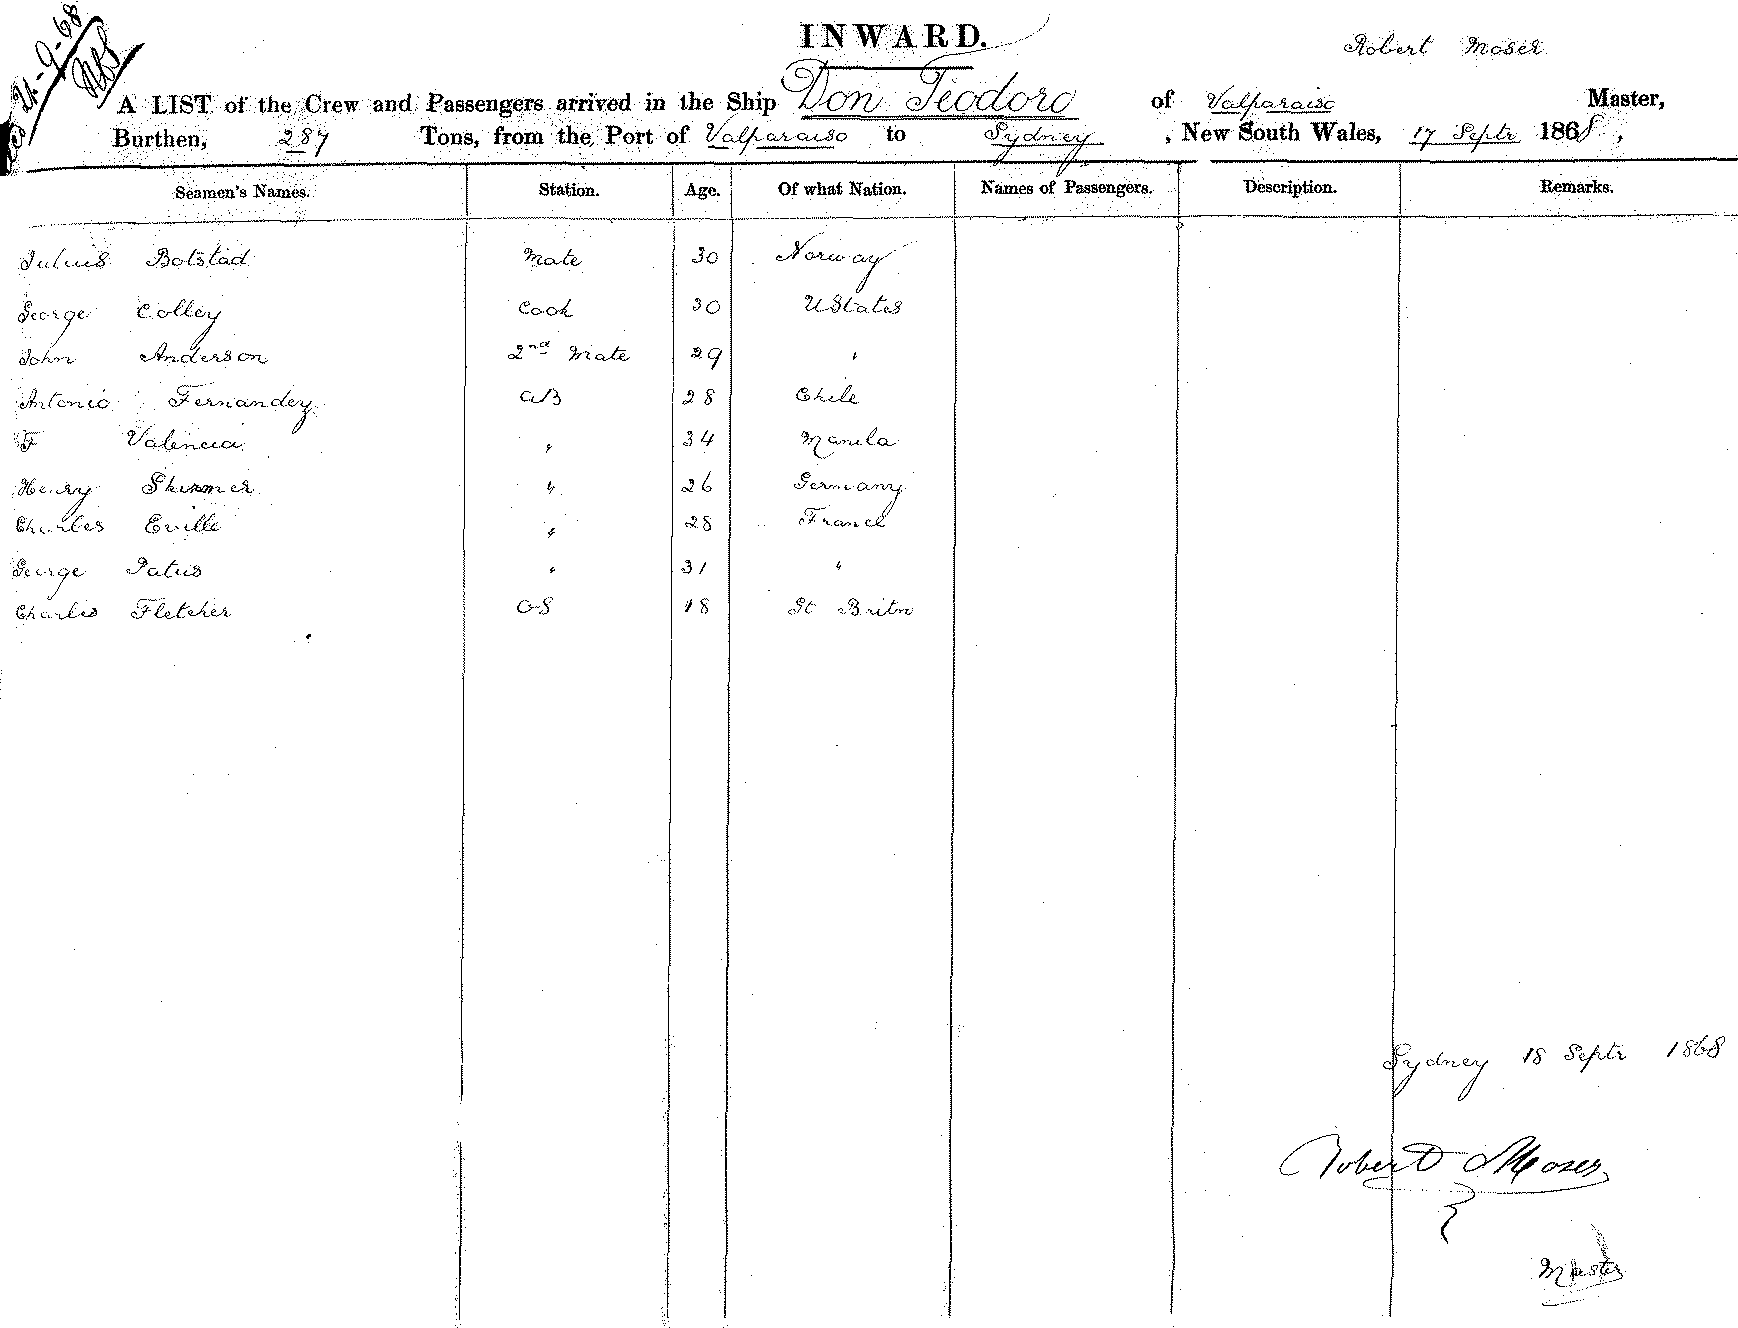 21-9-68
INWARD.
Robert Moser
A LIST of the Crew and Passengers arrived in the Ship Don Teodoro of Valparaiso Master,
Burthen, 287 Tons, from the Port of Valparaiso to Sydney, New South Wales, 17 Septr 1868,
Seamen's Names. Station. Age. Of what Nation. Names of Passengers. Description. Remarks.
Julius Botstad Mate 30 Norway
George Colley Cook 30 UStates
John Anderson 2nd Mate 29 "
Antonio Fernandez AB 28 Chile
F Valencia " 34 Manila
Henry Skinner " 26 Germany
Charles Eville " 28 France
George " 31 "
Charles Fletcher OS 18 Gt Britn
Sydney 18 Septr 1868
Robert Moser
Master